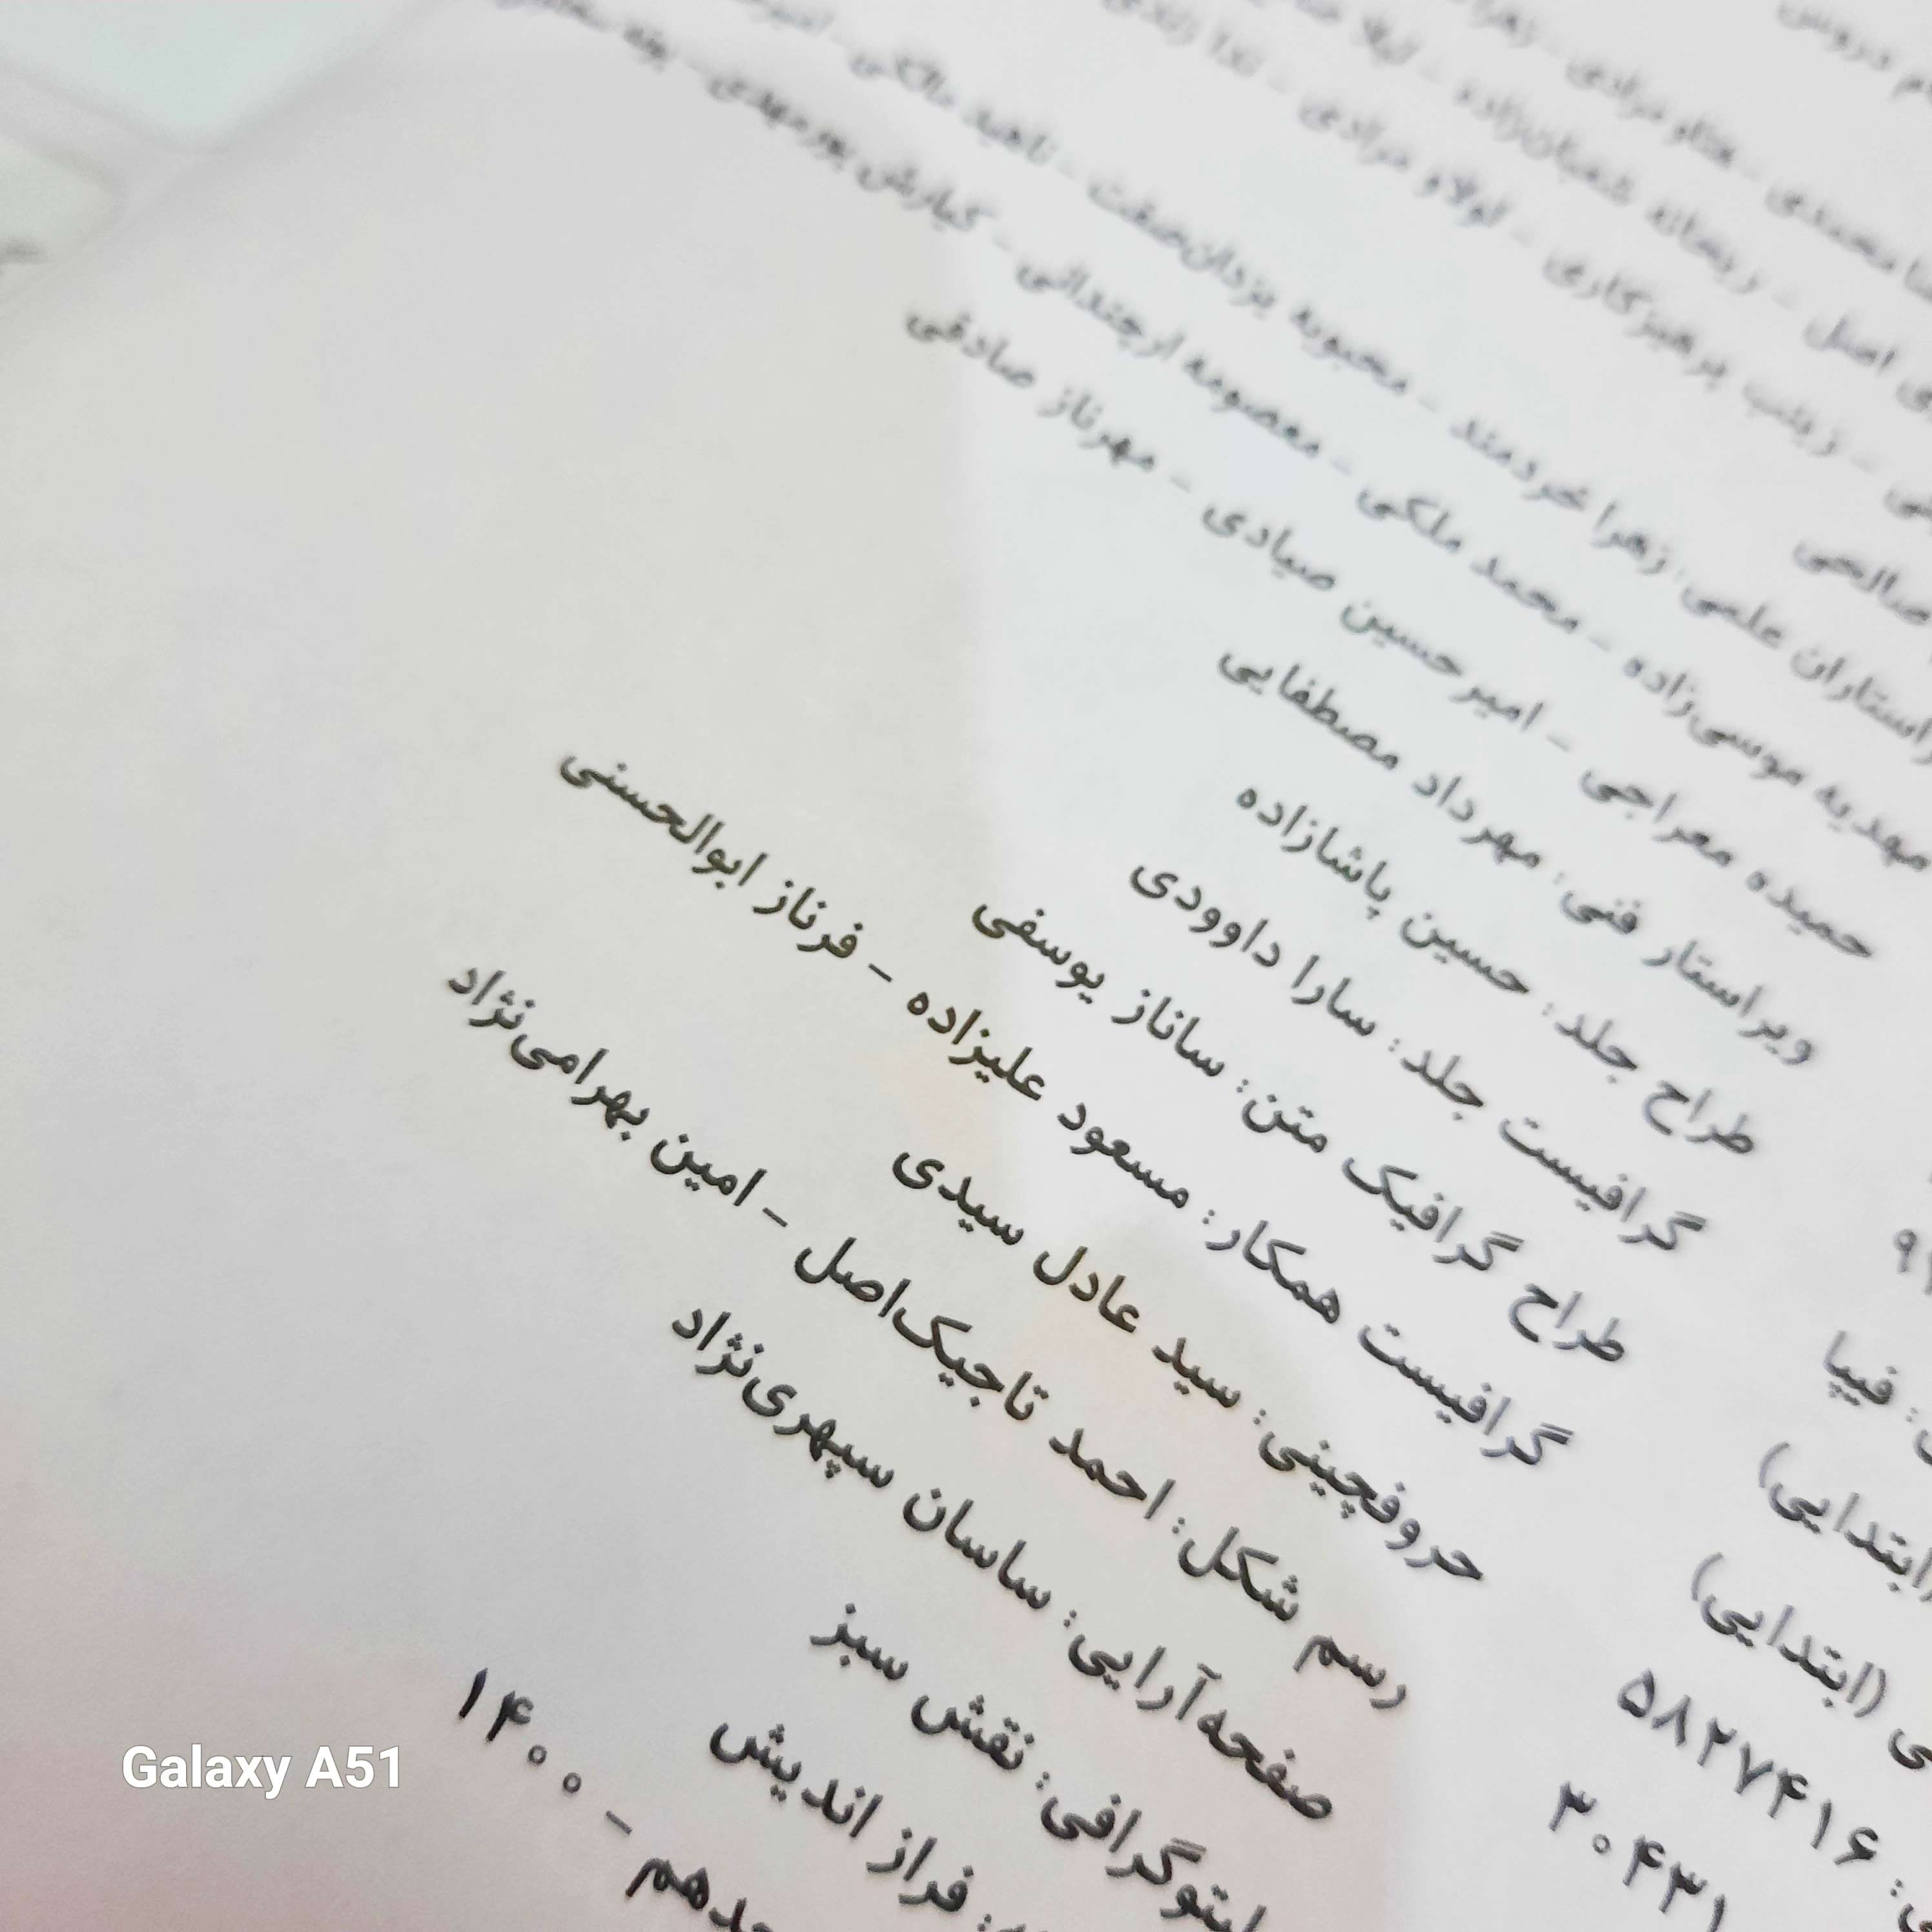 م دروس
محمدی - هناو مرادی - زهرا
ی اصل - ریحانه شعبان‌زاده - لیلا
زینب پرهیزکاری - لولاو مرادی - ندا زندی
صالحی
راستاران علمی: زهرا خردمند - محبوبه یزدان‌صفت - ناهید مالکی - امیر
مهدیه موسی‌زاده - محمد ملکی - معصومه ارجندانی - کیارش پورمهدی
حمیده معراجی - امیرحسین صیادی - مهرناز صادقی
ویراستار فنی: مهرداد مصطفایی
طراح جلد: حسین پاشازاده
گرافیست جلد: سارا داوودی
طراح گرافیک متن: ساناز یوسفی
گرافیست همکار: مسعود علیزاده - فرناز ابوالحسنی
حروفچینی: سید عادل سیدی
رسم شکل: احمد تاجیک‌اصل - امین بهرامی‌نژاد
صفحه‌آرایی: ساسان سپهری‌نژاد
لیتوگرافی: نقش سبز
: فراز اندیش
جدهم - ۱۴۰۰
: فیپا
(ابتدایی)
ی (ابتدایی)
: ۵۸۲۷۴۱۶
۳۰۴۳۱
Galaxy A51